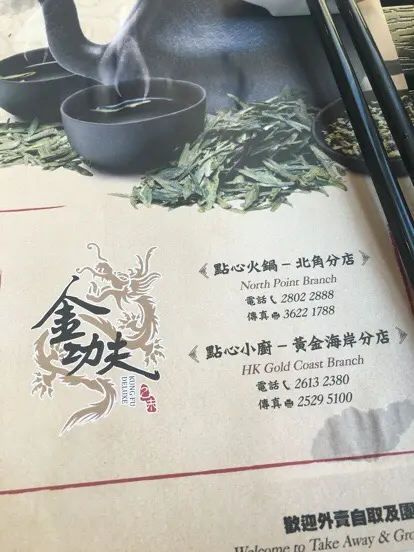 點心火鍋－北角分店
North Point Branch
電話 2802 2888
傳真 3622 1788
點心小廚－黃金海岸分店
HK Gold Coast Branch
電話 2613 2380
傳真 2529 5100
金功夫
KUNG FU
DELUXE
歡迎外賣自取及團
Welcome to Take Away &